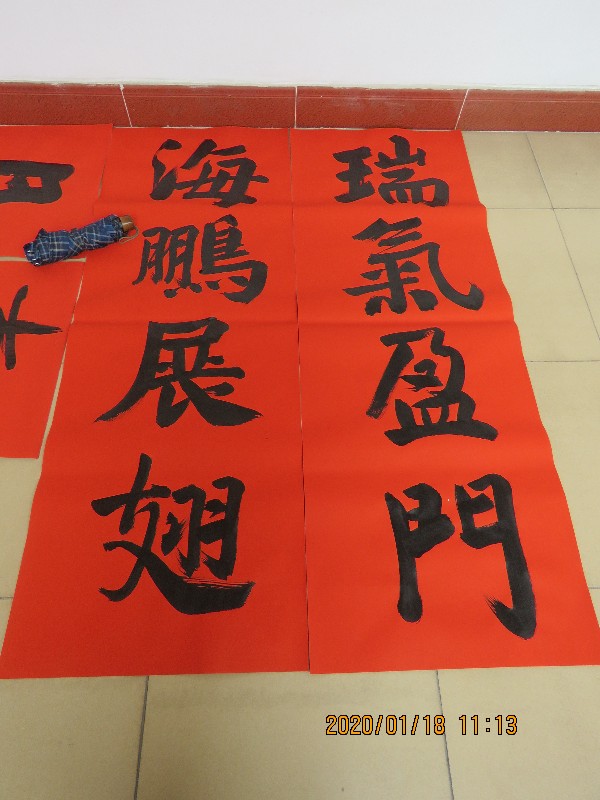 瑞氣盈門
海鵬展翅
2020/01/18 11:13